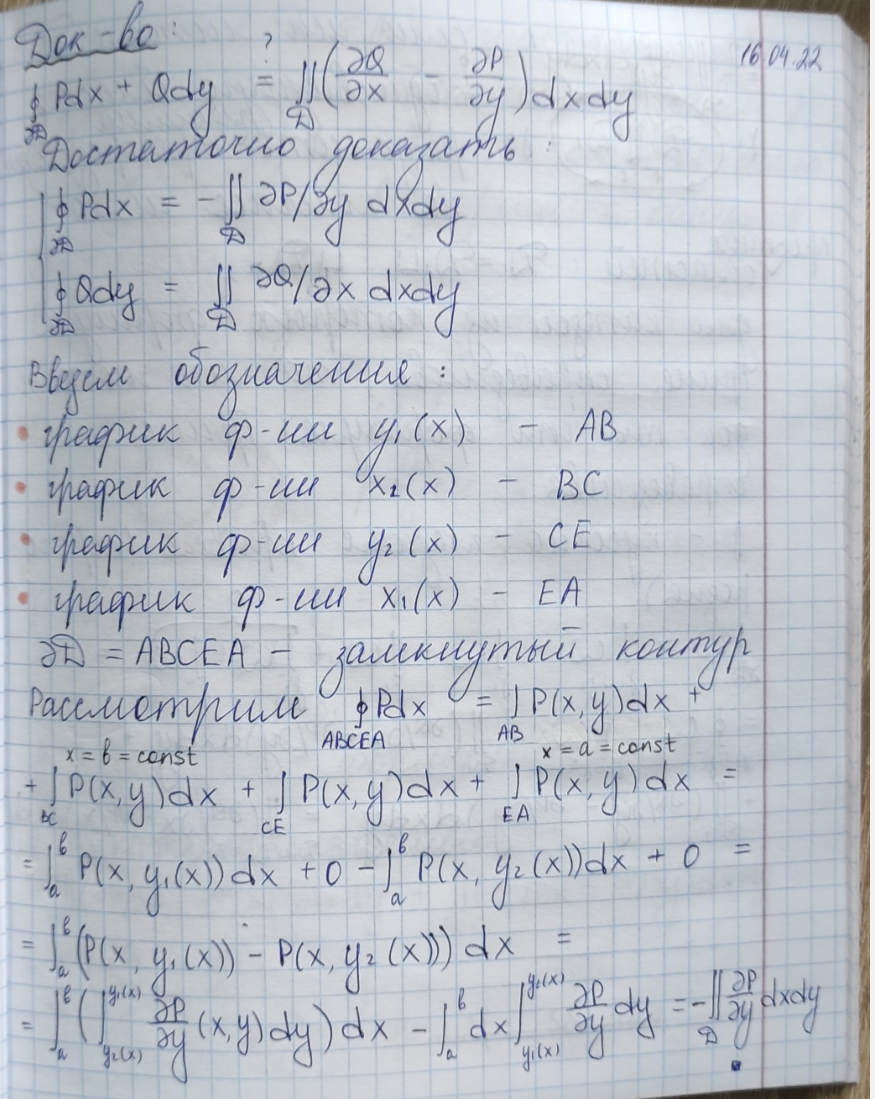 Док-во:
16.04.22
∮_{∂D} Pdx + Qdy =? ∬_D (∂Q/∂x - ∂P/∂y) dxdy
Достаточно доказать:
∮_{∂D} Pdx = -∬_D ∂P/∂y dxdy
∮_{∂D} Qdy = ∬_D ∂Q/∂x dxdy
Введем обозначения:
• график ф-ии y₁(x) - AB
• график ф-ии x₂(x) - BC
• график ф-ии y₂(x) - CE
• график ф-ии x₁(x) - EA
∂D = ABCEA - замкнутый контур
Рассмотрим ∮_{ABCEA} Pdx = ∫_{AB} P(x,y)dx +
x = b = const x = a = const
+ ∫_{BC} P(x,y)dx + ∫_{CE} P(x,y)dx + ∫_{EA} P(x,y)dx =
= ∫_a^b P(x, y₁(x))dx + 0 - ∫_a^b P(x, y₂(x))dx + 0 =
= ∫_a^b (P(x, y₁(x)) - P(x, y₂(x))) dx =
= ∫_a^b (∫_{y₂(x)}^{y₁(x)} ∂P/∂y (x,y)dy) dx - ∫_a^b dx ∫_{y₁(x)}^{y₂(x)} ∂P/∂y dy = -∬_D ∂P/∂y dxdy